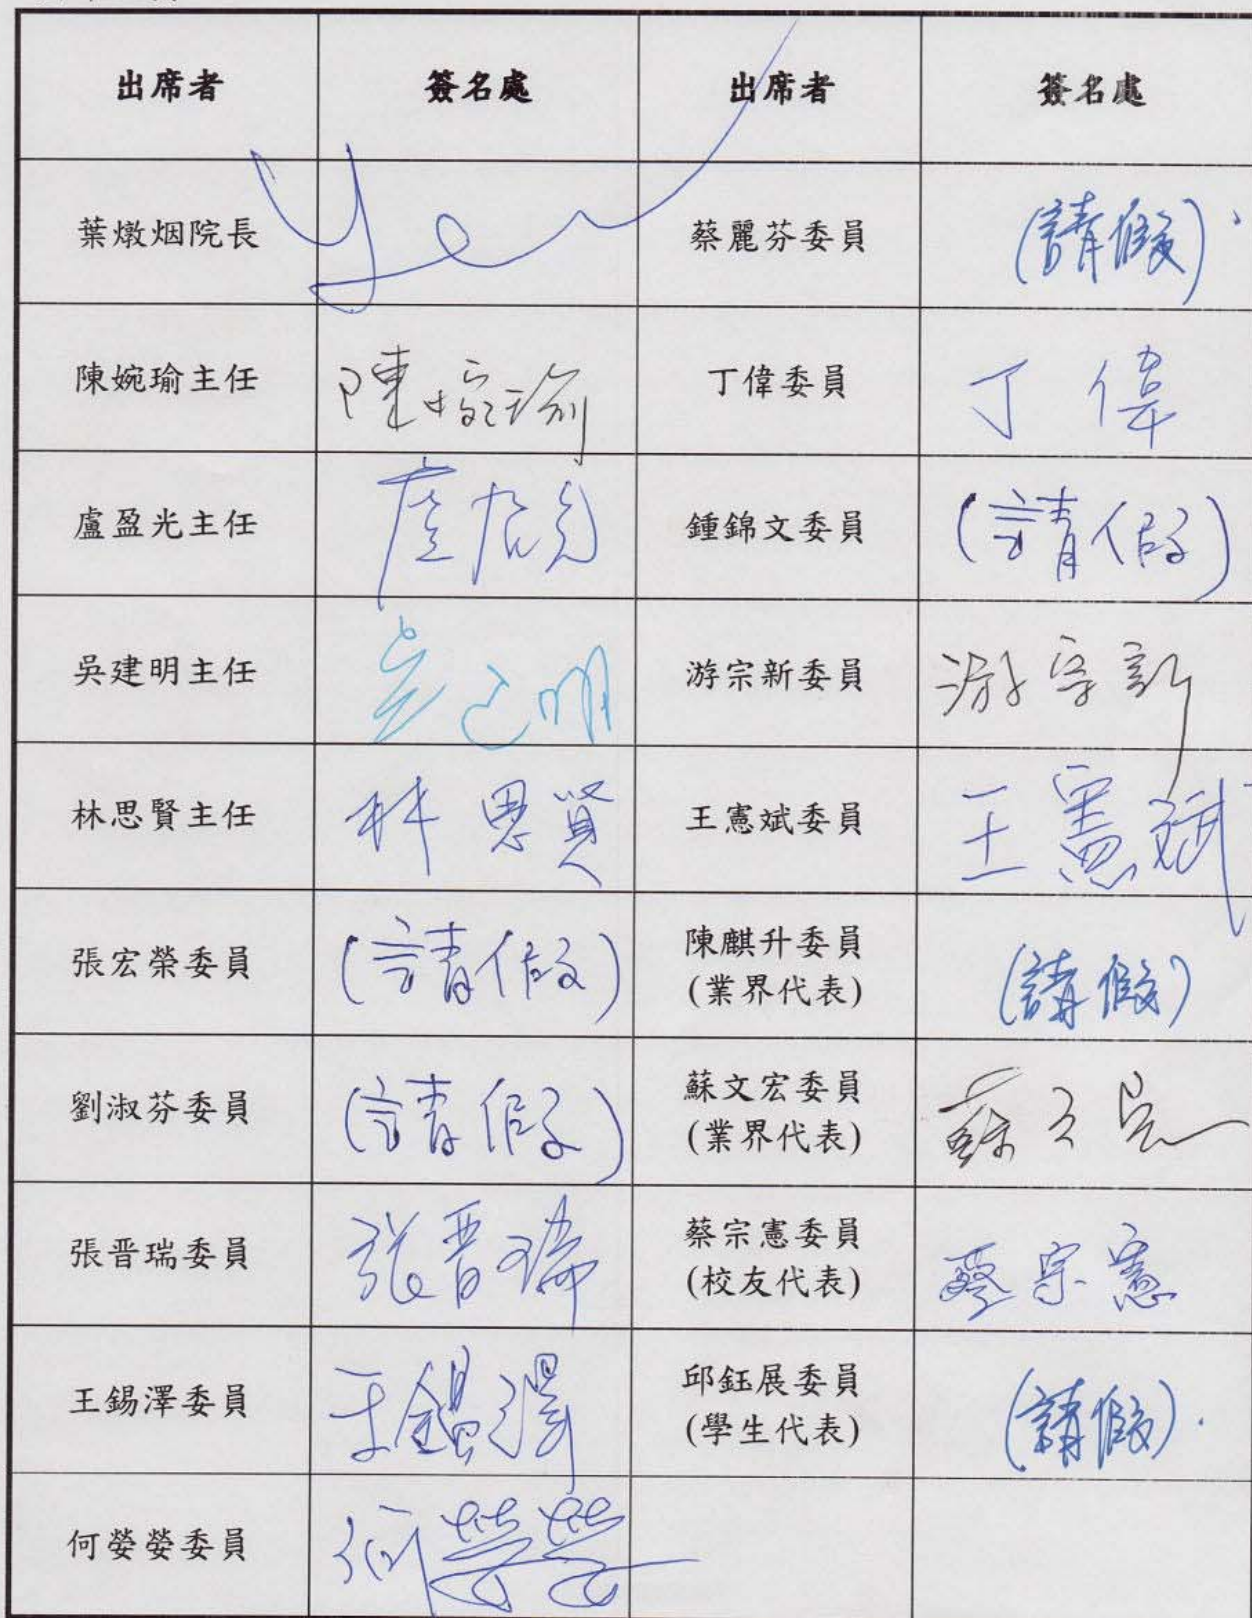 出席者 簽名處 出席者 簽名處
葉燉烟院長 Yen 蔡麗芬委員 (請假)
陳婉瑜主任 陳婉瑜 丁偉委員 丁偉
盧盈光主任 盧盈光 鍾錦文委員 (請假)
吳建明主任 吳建明 游宗新委員 游宗新
林思賢主任 林思賢 王憲斌委員 王憲斌
張宏榮委員 (請假) 陳麒升委員 (請假)
(業界代表)
劉淑芬委員 (請假) 蘇文宏委員 蘇文宏
(業界代表)
張晋瑞委員 張晋瑞 蔡宗憲委員 蔡宗憲
(校友代表)
王錫澤委員 王錫澤 邱鈺展委員 (請假)
(學生代表)
何嫈嫈委員 何嫈嫈